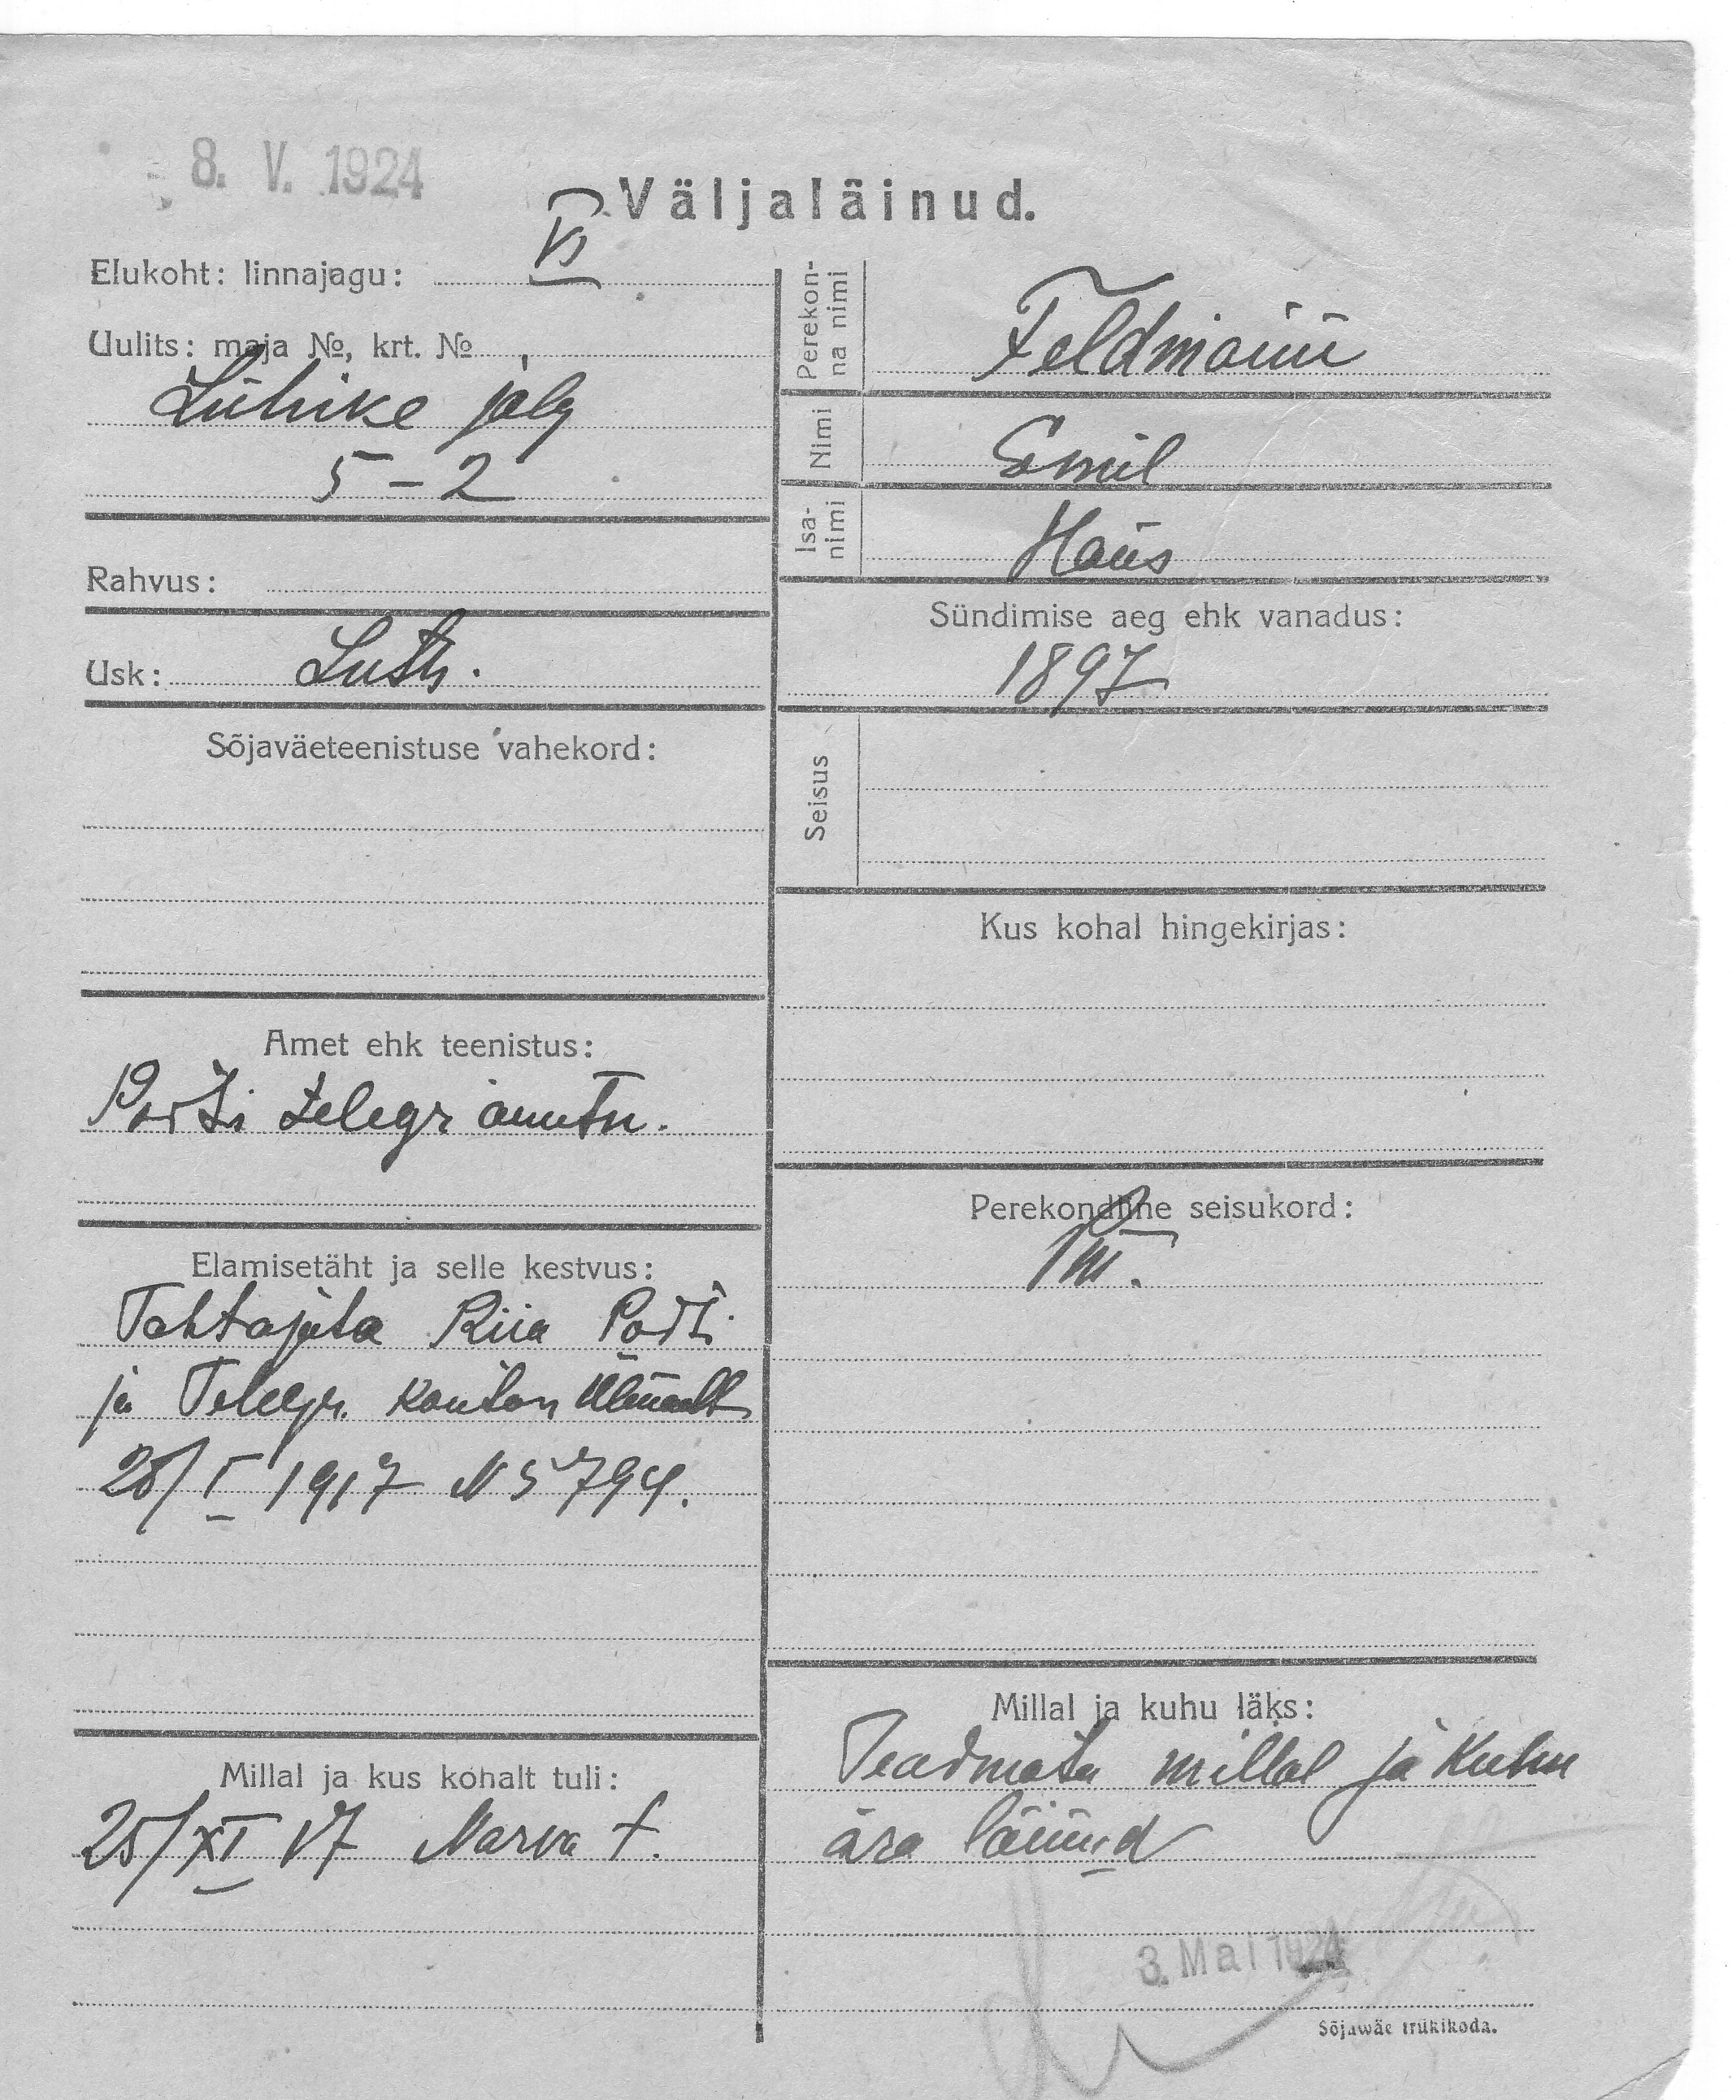 8. V. 1924
Väljaläinud.
Elukoht: linnajagu: VI
Uulits: maja №, krt. №
Lühike jalg
5 – 2
Rahvus:
Usk: Luth.
Sõjaväeteenistuse vahekord:
Amet ehk teenistus:
Posti telegr ametn.
Elamisetäht ja selle kestvus:
Tähtajata Riia Posti
ja Telegr. kontori ülemalt
28/I 1917 N 5794.
Millal ja kus kohalt tuli:
25/XI 17 Narva t.
Perekonna nimi
Feldmann
Nimi
Emil
Isanimi
Hans
Sündimise aeg ehk vanadus:
1897
Seisus
Kus kohal hingekirjas:
Perekondline seisukord:
Millal ja kuhu läks:
Teadmata millal ja kuhu
ära läinud
3. Mai 1924
Sõjawäe trükikoda.